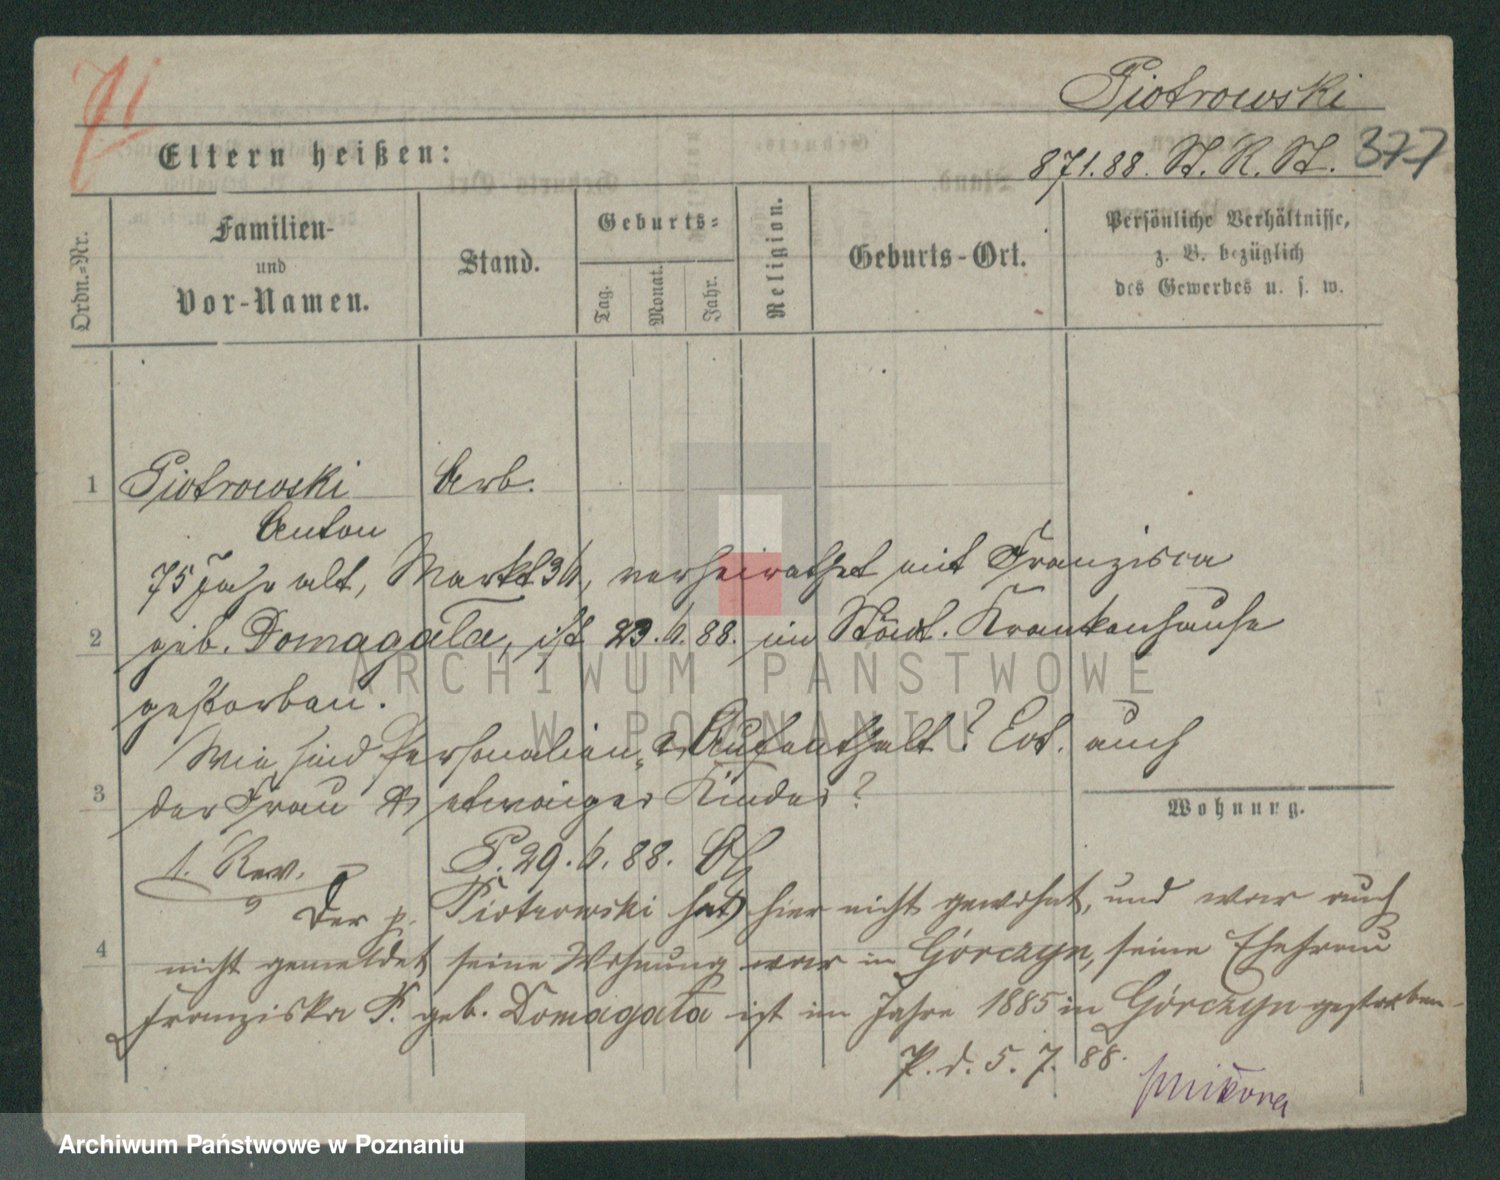 Piotrowski
Eltern heißen:
871.88. St. R. St. 377
Ordn.-Nr.
Familien-
und
Vor-Namen.
Stand.
Geburts-
Tag.
Monat.
Jahr.
Religion.
Geburts-Ort.
Persönliche Verhältnisse,
z. B. bezüglich
des Gewerbes u. s. w.
1 Piotrowski Arb.
Anton
75 Jahr alt, Markt 36, verheirathet mit Franzisca
2 geb. Domagała, ist 23.6.88. im Städt. Krankenhause
gestorben.
Wie sind Personalien, Aufenthalt? Evt. auch
3 der Frau & etwaiger Kinder?
Wohnung.
1. Rev. P. 29.6.88.
Der p. Piotrowski hat hier nicht gewohnt, und war auch
4 nicht gemeldet, seine Wohnung war in Górczyn, seine Ehefrau
Franziska P. geb. Domagała ist im Jahre 1885 in Górczyn gestorben
P. d. 5.7.88.
ARCHIWUM PAŃSTWOWE
W POZNANIU
Archiwum Państwowe w Poznaniu